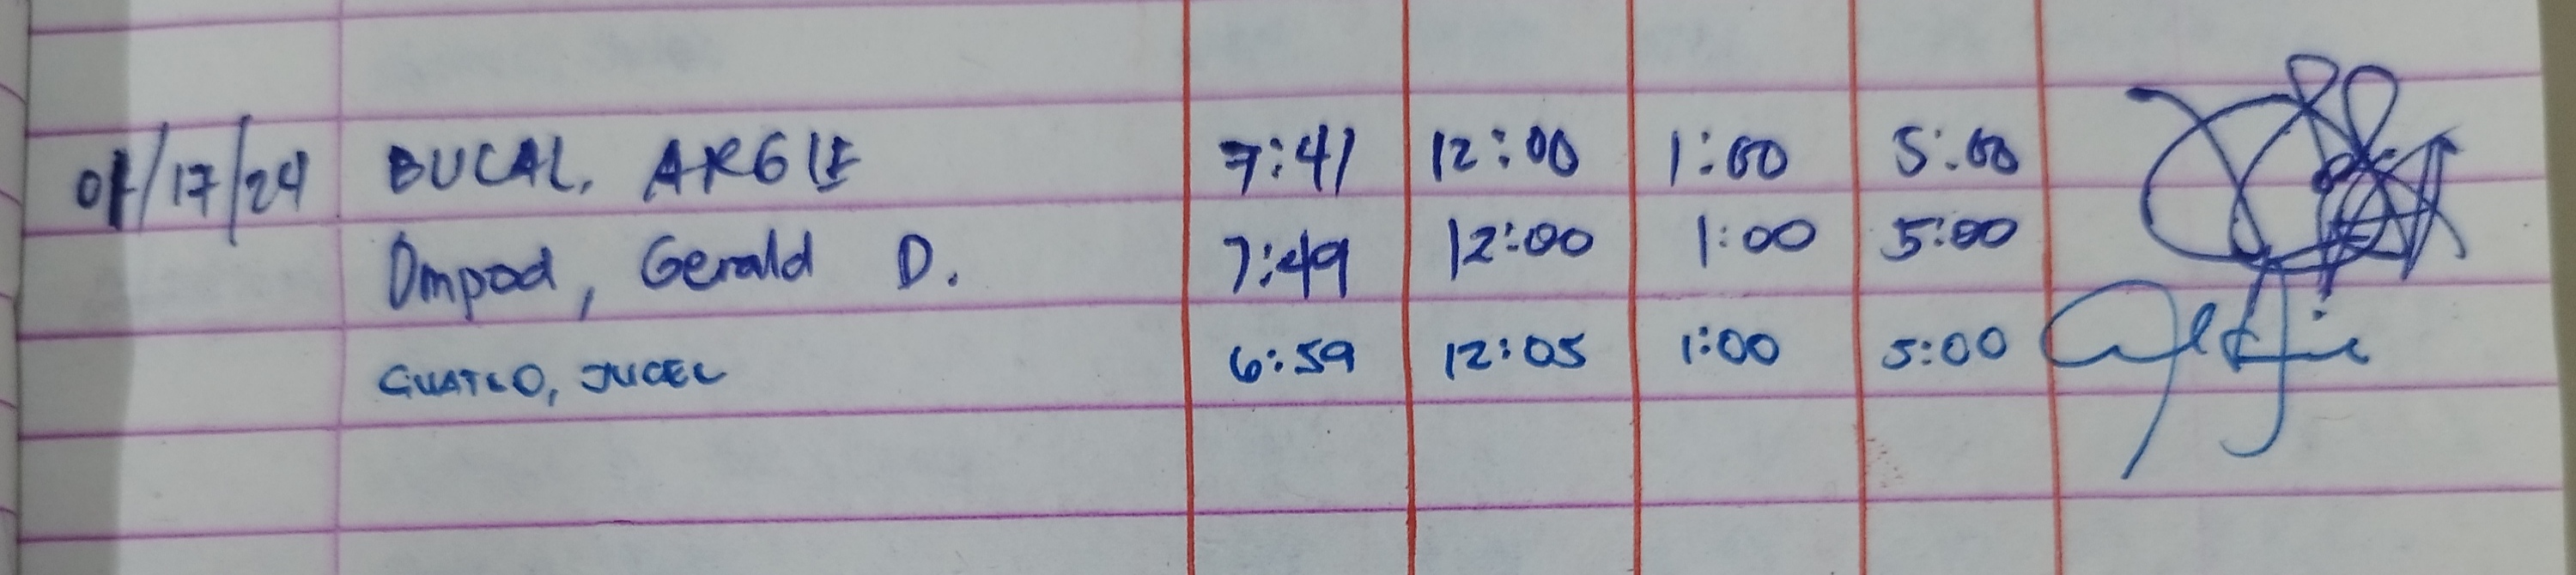 01/17/24 BUCAL, ARGIE 7:41 12:00 1:00 5:00
Ompod, Gerald D. 7:49 12:00 1:00 5:00
GUATLO, JUCEL 6:59 12:05 1:00 5:00